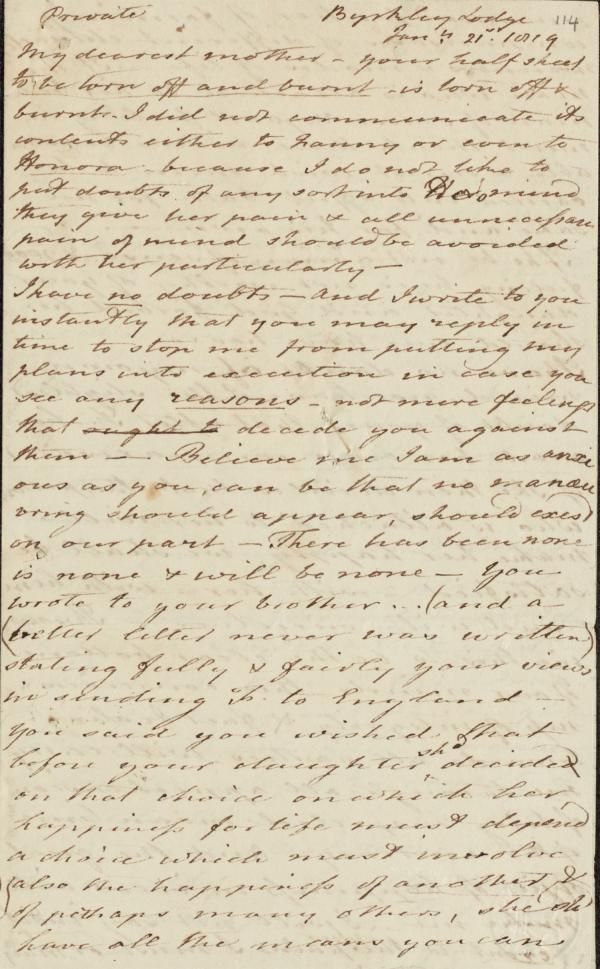 Private Byrkley Lodge 114
Jany. 21st. 1819
My dearest mother – your half sheet
to be torn off and burnt – is torn off &
burnt. I did not communicate its
contents either to Fanny or even to
Honora – because I do not like to
put doubts of any sort into Her mind
they give her pain & all unnecessary
pain of mind should be avoided
with her particularly –
I have no doubts – and I write to you
instantly that you may reply in
time to stop me from putting my
plans into execution in case you
see any reasons – not mere feelings
that ought to decide you against
them – Believe me I am as anxi
ous as you can be that no manœu
vring should appear, should exist
on our part – There has been none
is none & will be none – You
wrote to your brother ... (and a
(better letter never was written)
stating fully & fairly your views
in sending F. to England –
you said you wished that
before your daughter shd decided
on that choice on which her
happiness for life must depend
a choice which must involve
(also the happiness of another, &
of perhaps many others, she sh
have all the means you can